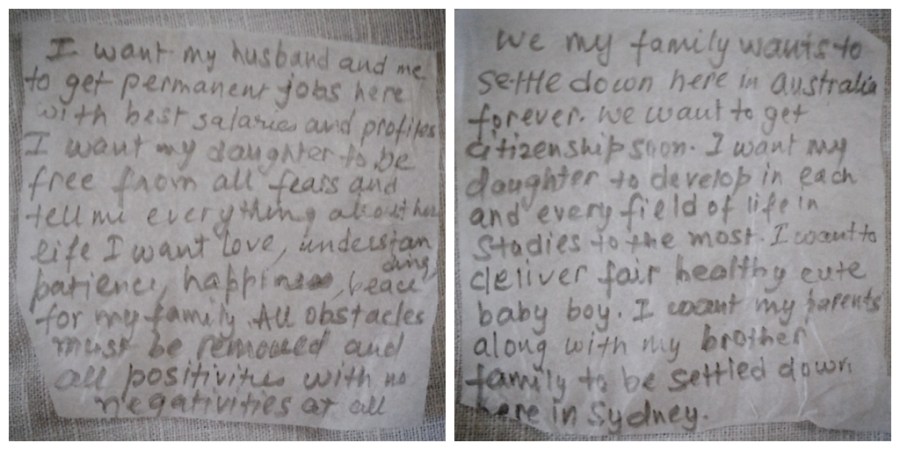 I want my husband and me
to get permanent jobs here
with best salaries and profits
I want my daughter to be
free from all fears and
tell me everything about her
life I want love, understan
ding,
patience, happiness, peace
for my family. All obstacles
must be removed and
all positivities with no
negativities at all
We my family wants to
settle down here in australia
forever. we want to get
citizenship soon. I want my
daughter to develop in each
and every field of life in
studies to the most. I want to
deliver fair healthy cute
baby boy. I want my parents
along with my brother
family to be settled down
here in Sydney.